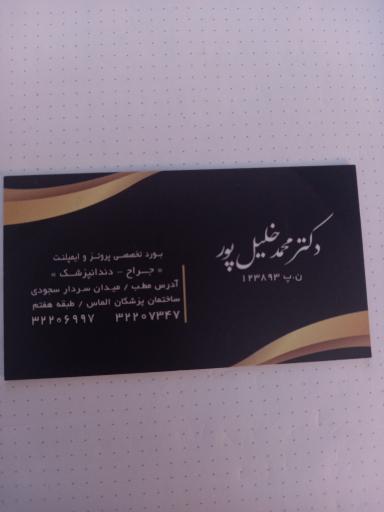 دکتر محمد خلیل پور
ن.پ ۱۲۳۸۹۳
بورد تخصصی پروتز و ایمپلنت
« جراح - دندانپزشک »
آدرس مطب / میدان سردار سجودی
ساختمان پزشکان الماس / طبقه هفتم
۳۲۲۰۷۳۴۷ ۳۲۲۰۶۹۹۷